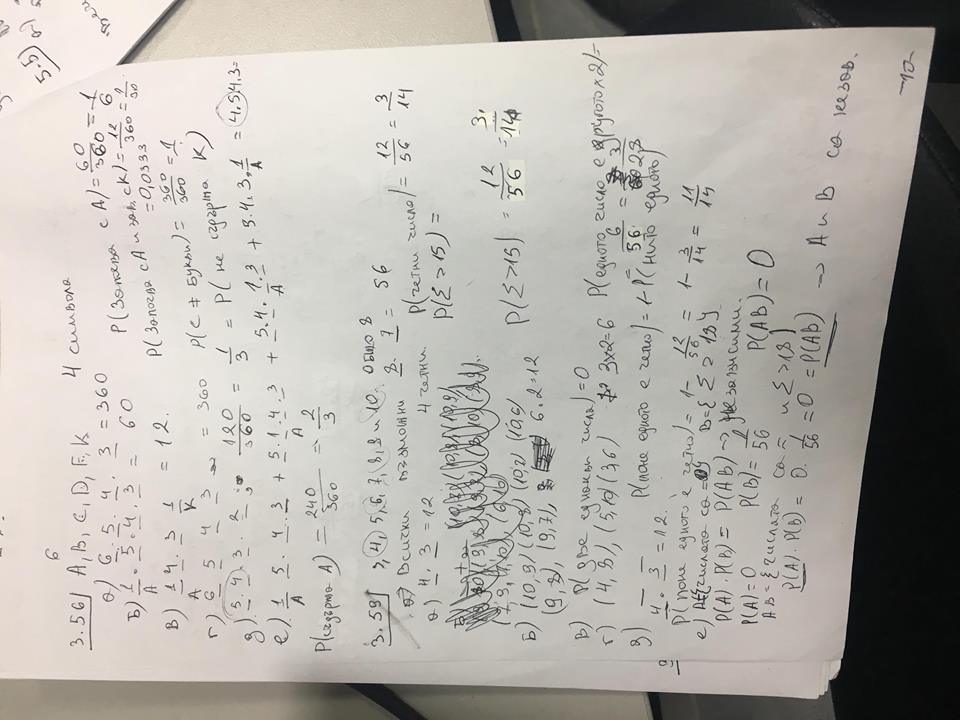 6
3.56) A, B, C, D, F, K 4 символа
а) 6 . 5 . 4 . 3 = 360 P(Започва с A) = 60/360 = 1/6
Б) 1/A . 5 . 4 . 3 = 60 P(Започва с A и зав. с K) = 12/360 = 1/30
= 0,0333
В) 1/A 4 . 3 1/K = 12. P(с ≠ букви) = 360/360 = 1.
г) 6 5 4 3 = 360
д) 5 . 4 . 3 . 2 ; 120/360 = 1/3 = P(не съдържа K)
е) 1/A 5 . 4 . 3 + 5 . 1/A . 4 . 3 + 5 . 4 . 1/A . 3 + 5 . 4 . 3 . 1/A = 4.5.4.3 =
P(съдържа A) = 240/360 = 2/3
3.59) 3, 4, 5, 6, 7, 8, 9 и 10. Общо 8
Всички възможни 8 . 7 = 56
а) 4 . 3 = 12 4 четни. P(четни числа) = 12/56 = 3/14
P(Σ>15) =
Б) (10,9) (10,8) (10,7) (10,6) P(Σ>15) = 12/56 = 3/14
(9,8), (9,7), 6.2=12
В) P(две еднакви числа) = 0
г) (4,8), (5,10) (3,6) 3x2=6 P(едното число е другото x2) =
= 6/56 = 3/28
д) _ _ P(поне едното е четно) = 1-P(нито едното)
4 . 3 = 12.
P(поне едното е четно) = 1 - 12/56 = 1 - 3/14 = 11/14
е) A={числата са =} B={Σ > 18}
P(A) . P(B) = P(AB) → независими.
P(A) = 0 P(B) = 1/56 P(AB) = 0
AB = {числата са = и Σ>18}
P(A) . P(B) = 0 . 1/56 = 0 = P(AB) → A и B са незав.
-10-
5.5)
а)